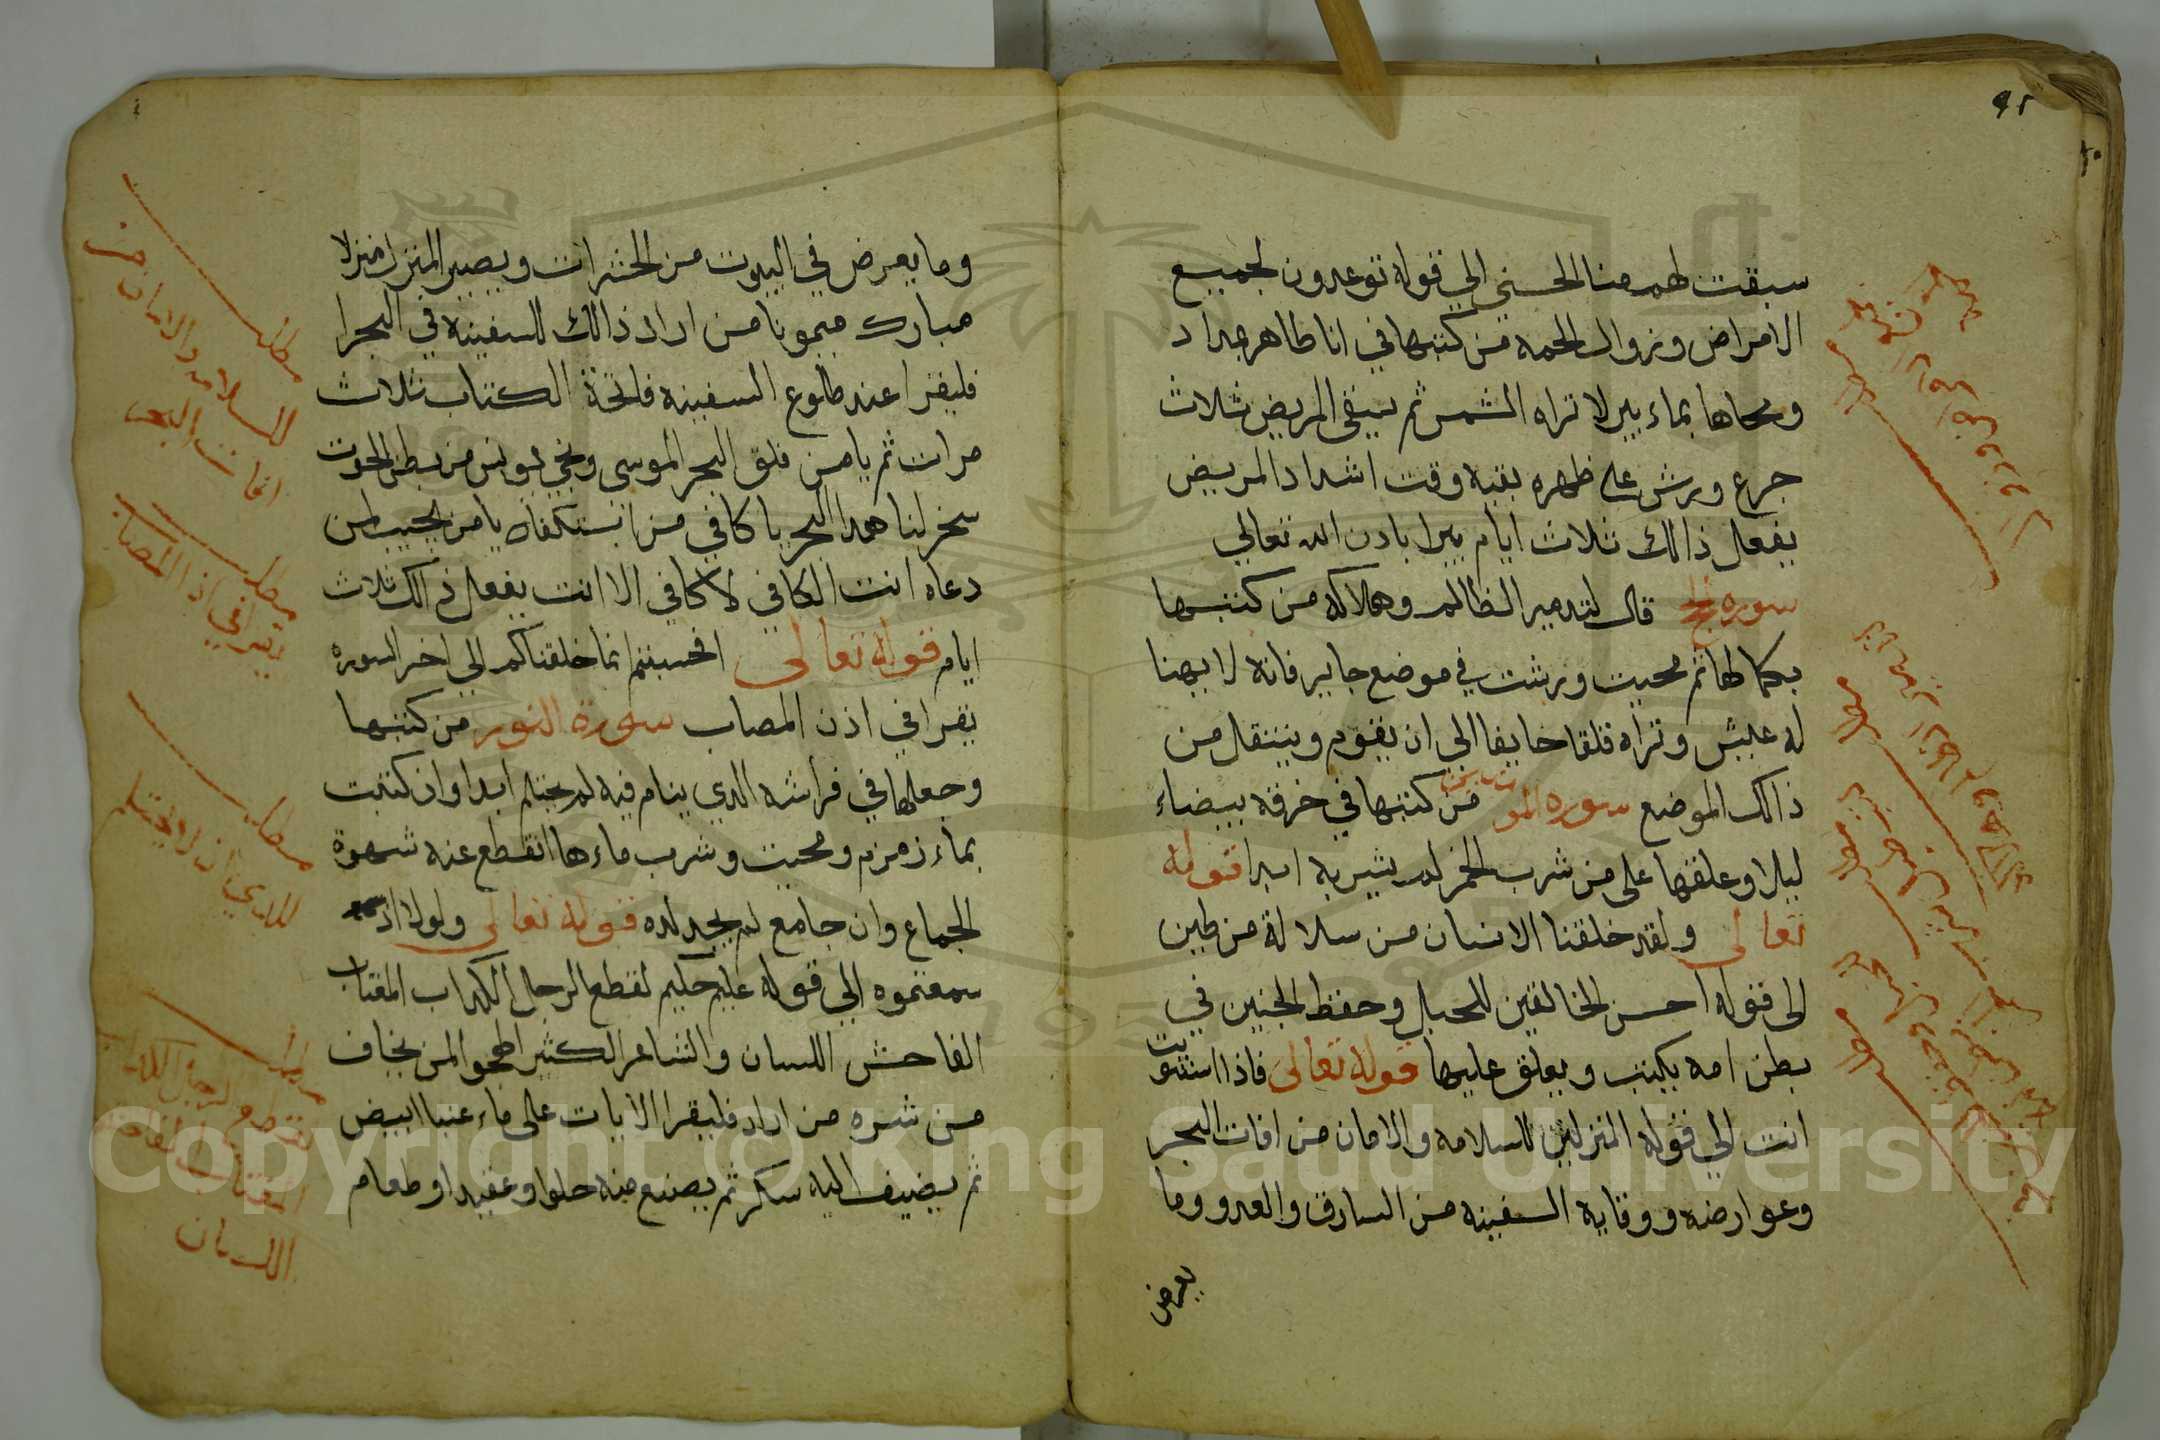 ٩٢
سبقت لهم منا الحسني الي قوله توعدون لجميع
الامراض وزوال الحمه من كتبها في انا طاهر جداد
ومحاها بماء بير لا تراه الشمس ثم يسقى المريض ثلاث
جرع ويرش على ظهره بقيه وقت اشداد المريض
يفعل ذالك ثلاث ايام يبرا بادن الله تعالي
سوره الحج قال لتدمير الظالم وهلاكه من كتبها
بكمالها ثم محيت ورشت في موضع جاير فانه لا يهنا
له عيش وتراه قلقا خايفا الي ان يقوم وينتقل من
ذالك الموضع سوره المومنين من كتبها في خرقة بيضاء
ليلا وعلقها على من شرب الخمر لم يشربه ابدا قوله
تعالى ولقد خلقنا الانسان من سلالة من طين
الى قوله احسن الخالقين للحبل وحفظ الجنين في
بطن امه يكتب ويعلق عليها قوله تعالى فاذا استويت
انت الي قوله المنزلين للسلامه والامان من افات البحر
وعوارضه ووقاية السفينه من السارق والعدو وما
يعرض
وما يعرض في البيوت من الحشرات ويصير المنزل منزلا
مبارك ميمونا من اراد ذالك للسفينه في البحرا
فليقرا عند طلوع السفينه فاتحة الكتاب ثلاث
مرات ثم يا من فلق البحر لموسى ونجي يونس من بطن الحوت
سخر لنا هدا البحر يا كافي من استكفاه يا من يجيب لمن
دعاه انت الكافي لا كافي الا انت يفعل ذالك ثلاث
ايام قوله تعالى افحسبتم انما خلقناكم الي اخر السوره
يقرا في اذن المصاب سورة النور من كتبها
وجعلها في فراشه الدي ينام فيه لم يحتلم ابدا وان كتبت
بماء زمزم ومحيت وشرب ماءها انقطع عنه شهوة
الجماع وان جامع لم يجد لده قوله تعالى ولولا اذ
سمعتموه الي قوله عليم حكيم لقطع الرجل الكداب المغتاب
الفاحش اللسان والشاعر الكثير الهجو المن يخاف
من شره من اراد فليقرا الايات على ماء عنبا ابيض
ثم يضيف اليه سكر ثم يصنع منه حلوا وعقيدا وطعام
مطلب
للسلامه والامان من
افات البحر
مطلب
يقرا في اذن المصاب
مطلب
للدي ان لا يحتلم
مطلب
لقطع الرجل الكداب
المغتاب الفاحش
اللسان
Copyright © King Saud University
1957